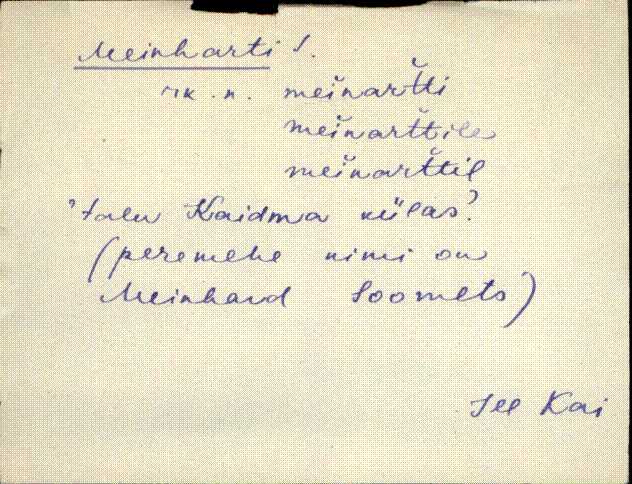 Meinharti t.
rk. n. meĭnarťti
meĭnarťtile
meĭnarťtil
'talu Kaidma külas'.
(peremehe nimi on
Meinhard Soomets)
Jll Kai